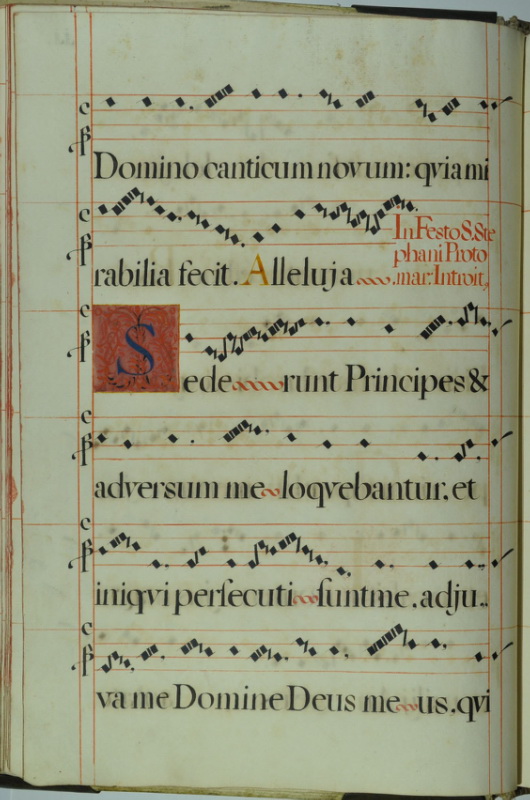 Domino canticum novum: qvia mi
rabilia fecit. Alleluja
In Festo S. Ste
phani Proto
mar: Introit,
Sederunt Principes &
adversum me loqvebantur, et
iniqvi persecuti sunt me. adju..
va me Domine Deus meus. qvi